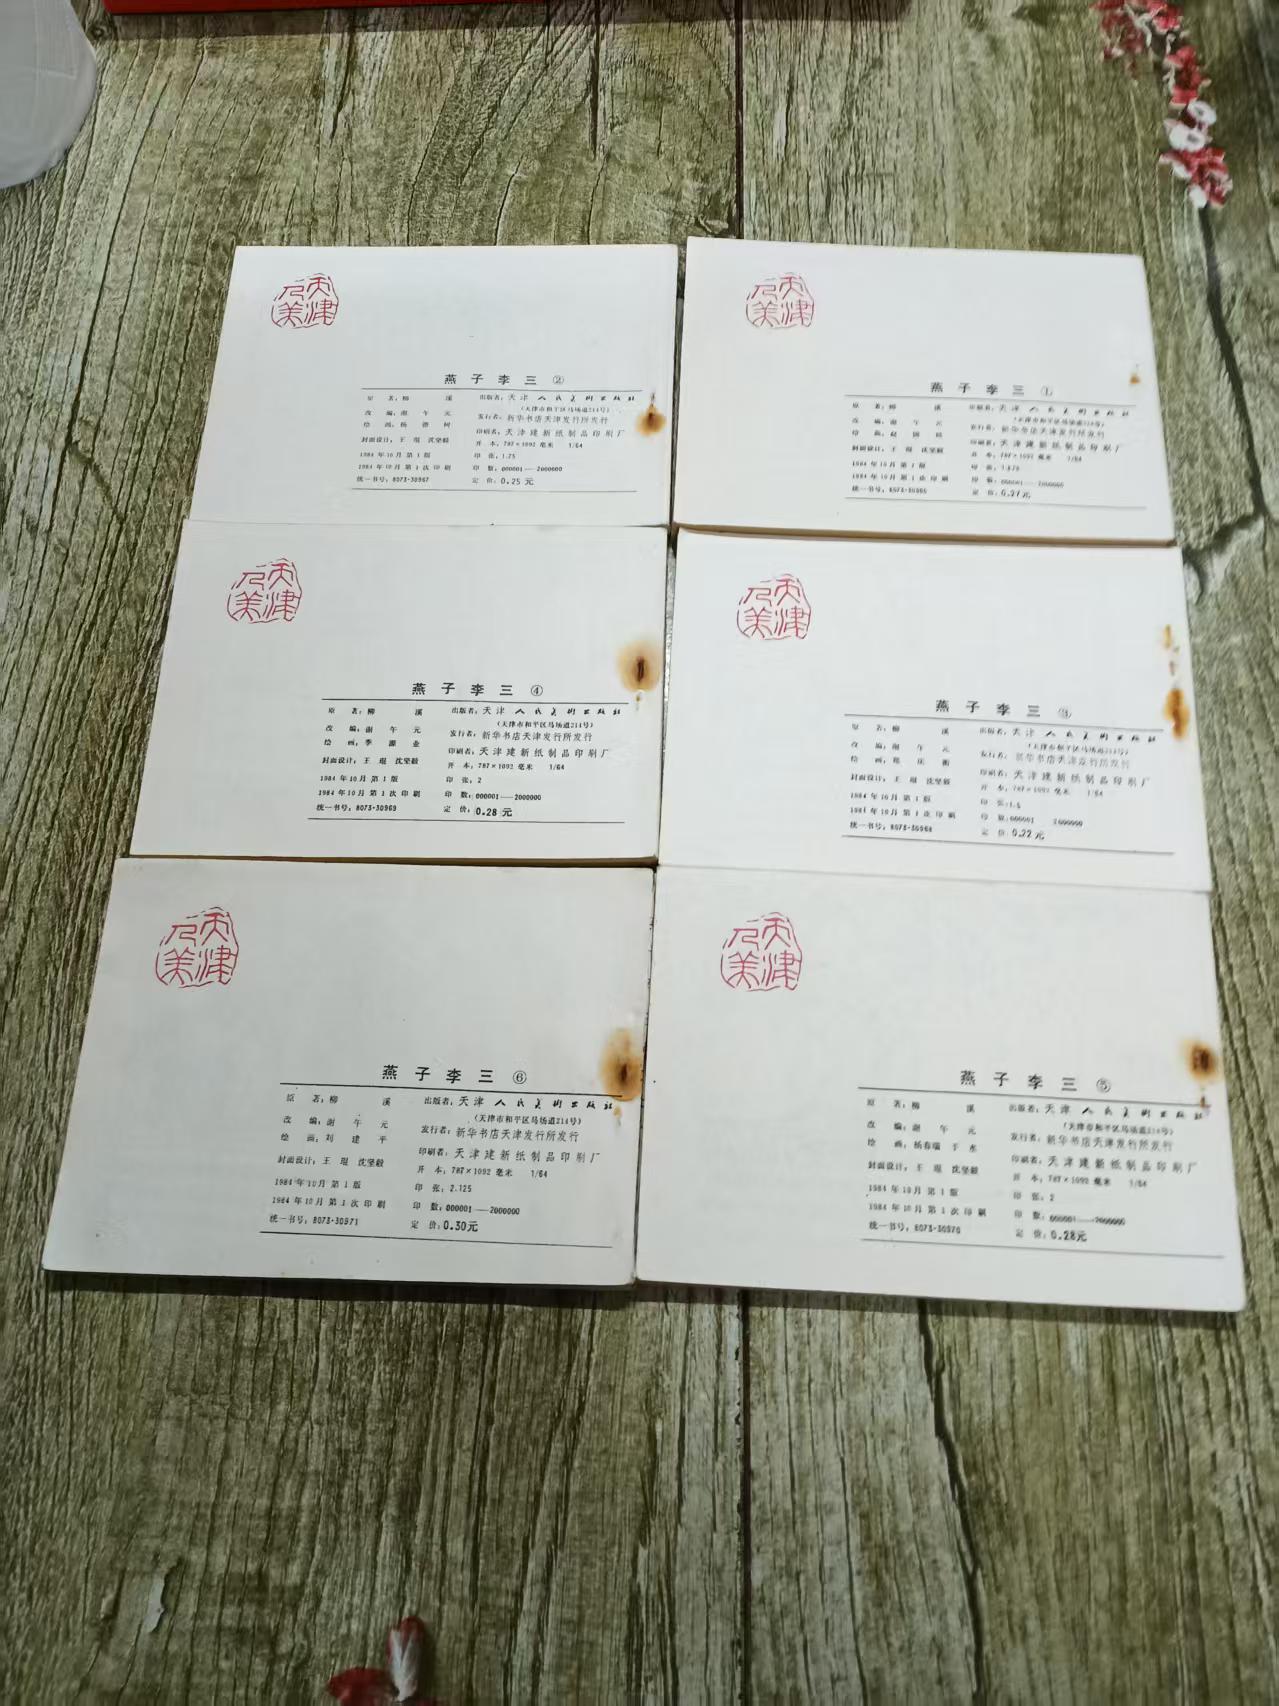 天津
人美
燕子李三②
原著:柳溪
改编:谢午元
绘画:杨德树
封面设计:王琨 沈坚毅
1984年10月第1版
1984年10月第1次印刷
统一书号:8073·30967
出版者:天津人民美术出版社
(天津市和平区马场道214号)
发行者:新华书店天津发行所发行
印刷者:天津建新纸制品印刷厂
开本:787×1092毫米 1/64
印张:1.75
印数:000001—2000000
定价:0.25元
天津
人美
燕子李三①
原著:柳溪
改编:谢午元
绘画:赵
封面设计:王琨 沈坚毅
1984年10月第1版
1984年10月第1次印刷
统一书号:8073·30966
出版者:天津人民美术出版社
(天津市和平区马场道214号)
发行者:新华书店天津发行所发行
印刷者:天津建新纸制品印刷厂
开本:787×1092毫米 1/64
印张:1.875
印数:000001—2000000
定价:0.27元
天津
人美
燕子李三④
原著:柳溪
改编:谢午元
绘画:季源业
封面设计:王琨 沈坚毅
1984年10月第1版
1984年10月第1次印刷
统一书号:8073·30969
出版者:天津人民美术出版社
(天津市和平区马场道214号)
发行者:新华书店天津发行所发行
印刷者:天津建新纸制品印刷厂
开本:787×1092毫米 1/64
印张:2
印数:000001—2000000
定价:0.28元
天津
人美
燕子李三③
原著:柳溪
改编:谢午元
绘画:庆衡
封面设计:王琨 沈坚毅
1984年10月第1版
1984年10月第1次印刷
统一书号:8073·30968
出版者:天津人民美术出版社
(天津市和平区马场道214号)
发行者:新华书店天津发行所发行
印刷者:天津建新纸制品印刷厂
开本:787×1092毫米 1/64
印张:1.5
印数:000001 2000000
定价:0.22元
天津
人美
燕子李三⑥
原著:柳溪
改编:谢午元
绘画:刘建平
封面设计:王琨 沈坚毅
1984年10月第1版
1984年10月第1次印刷
统一书号:8073·30971
出版者:天津人民美术出版社
(天津市和平区马场道214号)
发行者:新华书店天津发行所发行
印刷者:天津建新纸制品印刷厂
开本:787×1092毫米 1/64
印张:2.125
印数:000001—2000000
定价:0.30元
天津
人美
燕子李三⑤
原著:柳溪
改编:谢午元
绘画:杨春瑞 于水
封面设计:王琨 沈坚毅
1984年10月第1版
1984年10月第1次印刷
统一书号:8073·30970
出版者:天津人民美术出版社
(天津市和平区马场道214号)
发行者:新华书店天津发行所发行
印刷者:天津建新纸制品印刷厂
开本:787×1092毫米 1/64
印张:2
印数:000001—2000000
定价:0.28元